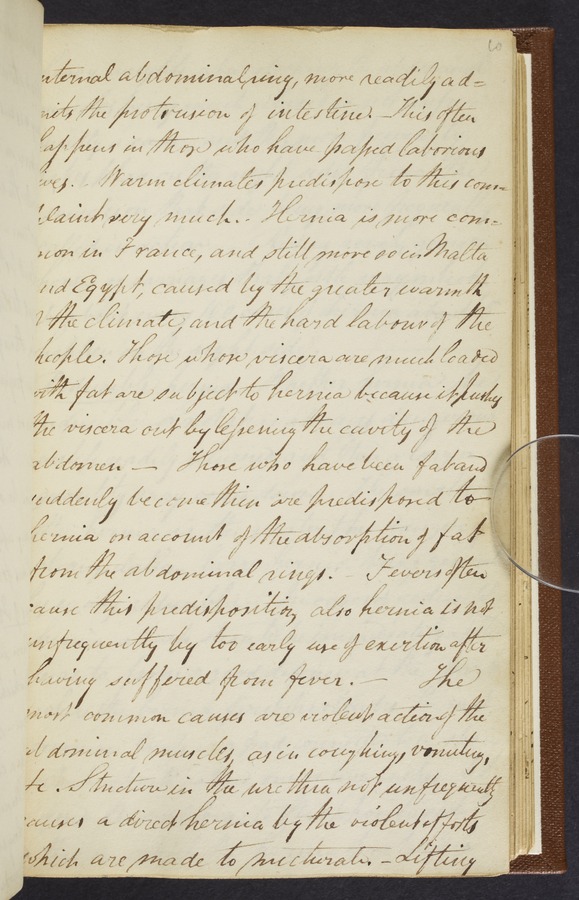 60
nternal abdominal ring, more readily ad=
mits the protrusion of intestine. This often
happens in those who have passed laborious
lives. - Warm climates predispose to this com=
plaint very much. - Hernia is more com=
mon in France, and still more so in Malta
and Egypt, caused by the greater warmth
the climate, and the hard labour of the
people. Those whose viscera are much loaded
with fat are subject to hernia because it pushes
the viscera out by lessening the cavity of the
abdomen — Those who have been fat and
suddenly become thin are predisposed to
hernia on account of the absorption of fat
from the abdominal rings. - Fevers often
cause this predisposition, also hernia is not
unfrequently by too early use of exertion after
having suffered from fever. — The
most common causes are violent action of the
abdominal muscles, as in coughing, vomiting,
&c. Stricture in the urethra not unfrequently
causes a direct hernia by the violent efforts
which are made to micturate. - Lifting